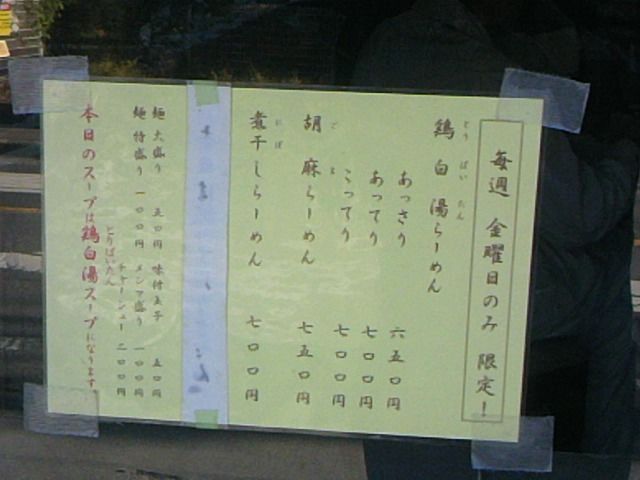 毎週 金曜日のみ 限定!
鶏白湯らーめん
とう ぱい たん
あっさり 六五〇円
あってり 七〇〇円
こってり 七〇〇円
胡麻らーめん 七五〇円
ご ま
煮干しらーめん 七〇〇円
にぼ
麺 大盛り 五〇円 味付玉子 五〇円
麺 特盛り 一〇〇円 メンマ盛り 一〇〇円
チャーシュー 二〇〇円
とりぱいたん
本日のスープは鶏白湯スープになります